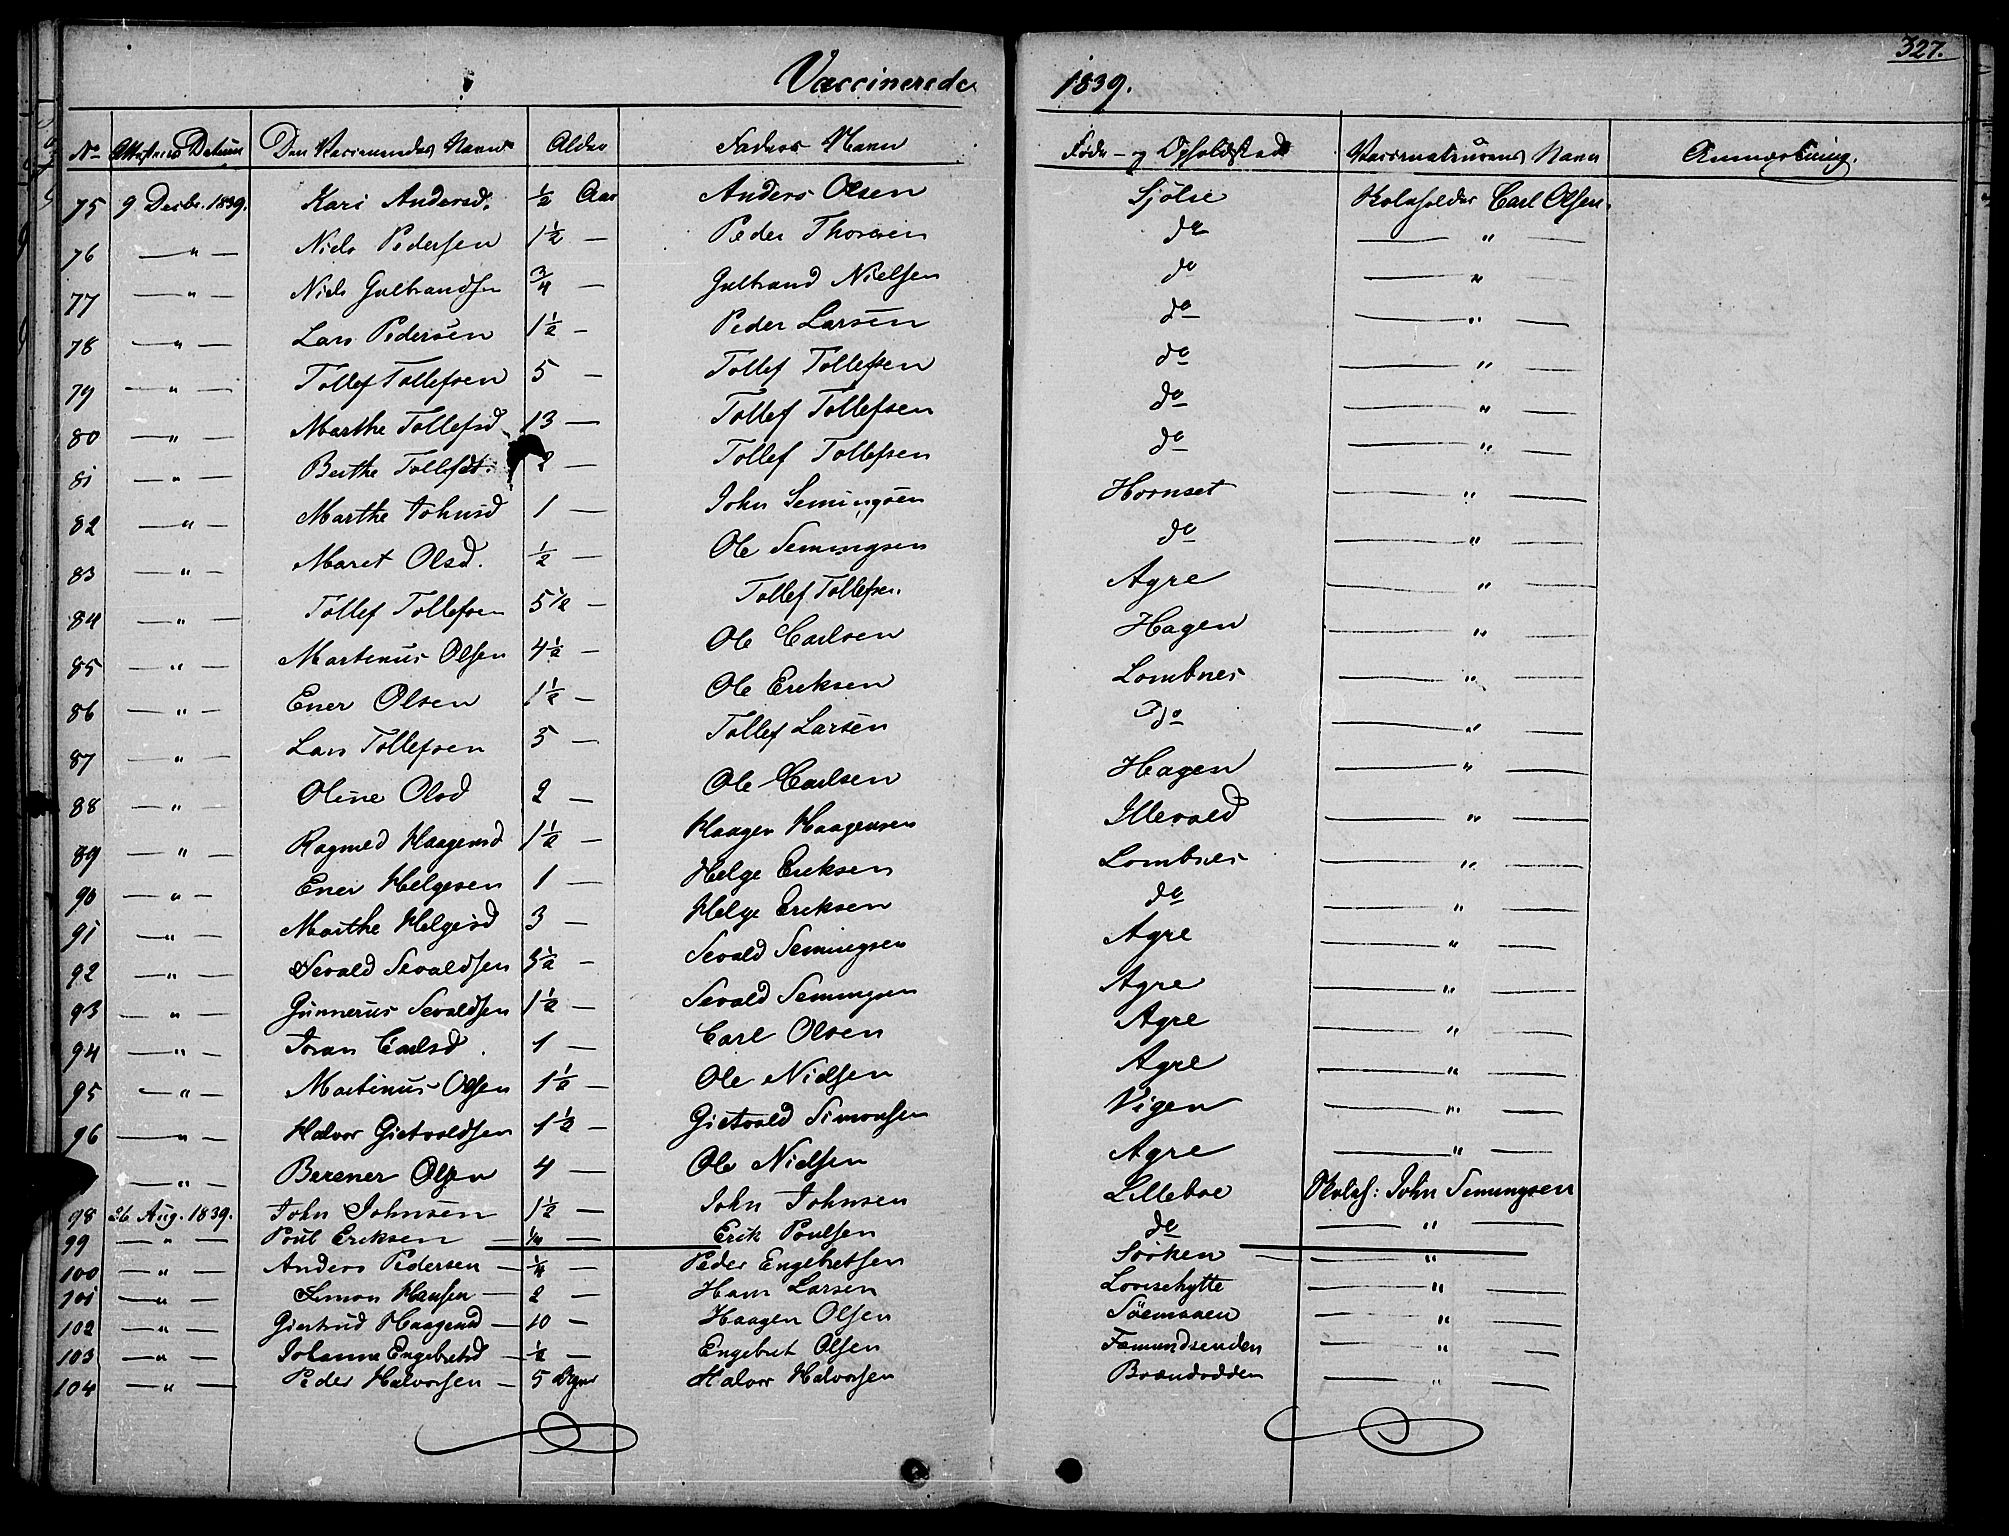 327.
Vaccinerede 1839.
No Attestens Datum Den Vaccineredes Navn Alder Faders Navn Føde- og Opholdssted Vaccinateurens Navn Anmærkning.
75 9 Decbr. 1839. Kari Andersd. ½ Aar Anders Olsen Sjölie Skoleholder Carl Olsen.
76 — " — Niels Pedersen 1½ — Peder Thorsen do — " —
77 — " — Niels Gulbrandsen ¾ — Gulbrand Nielsen do — " —
78 — " — Lars Pedersen 1½ — Peder Larsen do — " —
79 — " — Tollef Tollefsen 5 — Tollef Tollefsen do — " —
80 — " — Marthe Tollefsd 13 — Tollef Tollefsen do — " —
81 — " — Berthe Tollefsd. 2 — Tollef Tollefsen do — " —
82 — " — Marthe Johnsd 1 — John Semingsen Hornset — " —
83 — " — Maret Olsd. ½ — Ole Semingsen do — " —
84 — " — Tollef Tollefsen 5½ — Tollef Tollefsen. Agre — " —
85 — " — Martinus Olsen 4½ — Ole Carlsen Hagen — " —
86 — " — Ener Olsen 1½ — Ole Eriksen Lombnes — " —
87 — " — Lars Tollefsen 5 — Tollef Larsen do — " —
88 — " — Oline Olsd 2 — Ole Carlsen Hagen — " —
89 — " — Ragnild Haagensd 1½ — Haagen Haagensen Illevold — " —
90 — " — Ener Helgesen 1 — Helge Eriksen Lombnes — " —
91 — " — Marthe Helgesd 3 — Helge Eriksen do — " —
92 — " — Sevald Sevaldsen 3½ — Sevald Semingsen Agre — " —
93 — " — Gunnerus Sevaldsen 1½ — Sevald Semingsen Agre — " —
94 — " — Joran Carlsd. 1 — Carl Olsen Agre — " —
95 — " — Martinus Olsen 1½ — Ole Nielsen Agre — " —
96 — " — Halvor Gietvaldsen 1½ — Gietvald Simonsen Vigen — " —
— " — Bersner Olsen 4 — Ole Nielsen Agre — " —
98 26 Aug. 1839. John Johnsen 1½ — John Johnsen Lilleboe Skoleh: John Semingsen
99 — " — Poul Eriksen — ¼ — Erik Poulsen do — " —
100 — " — Anders Pedersen — ¼ — Peder Engebretsen Sörken — " —
101 — " — Simon Hansen — 2 — Hans Larsen Lovisehytte — " —
102 — " — Giertrud Haagensd — 10 — Haagen Olsen Söemoen — " —
103 — " — Johanne Engebretsd — ½ — Engebret Olsen Fæmundsenden — " —
104 — " — Peder Halvorsen — 5 Halvor Halvorsen Brændodden — " —